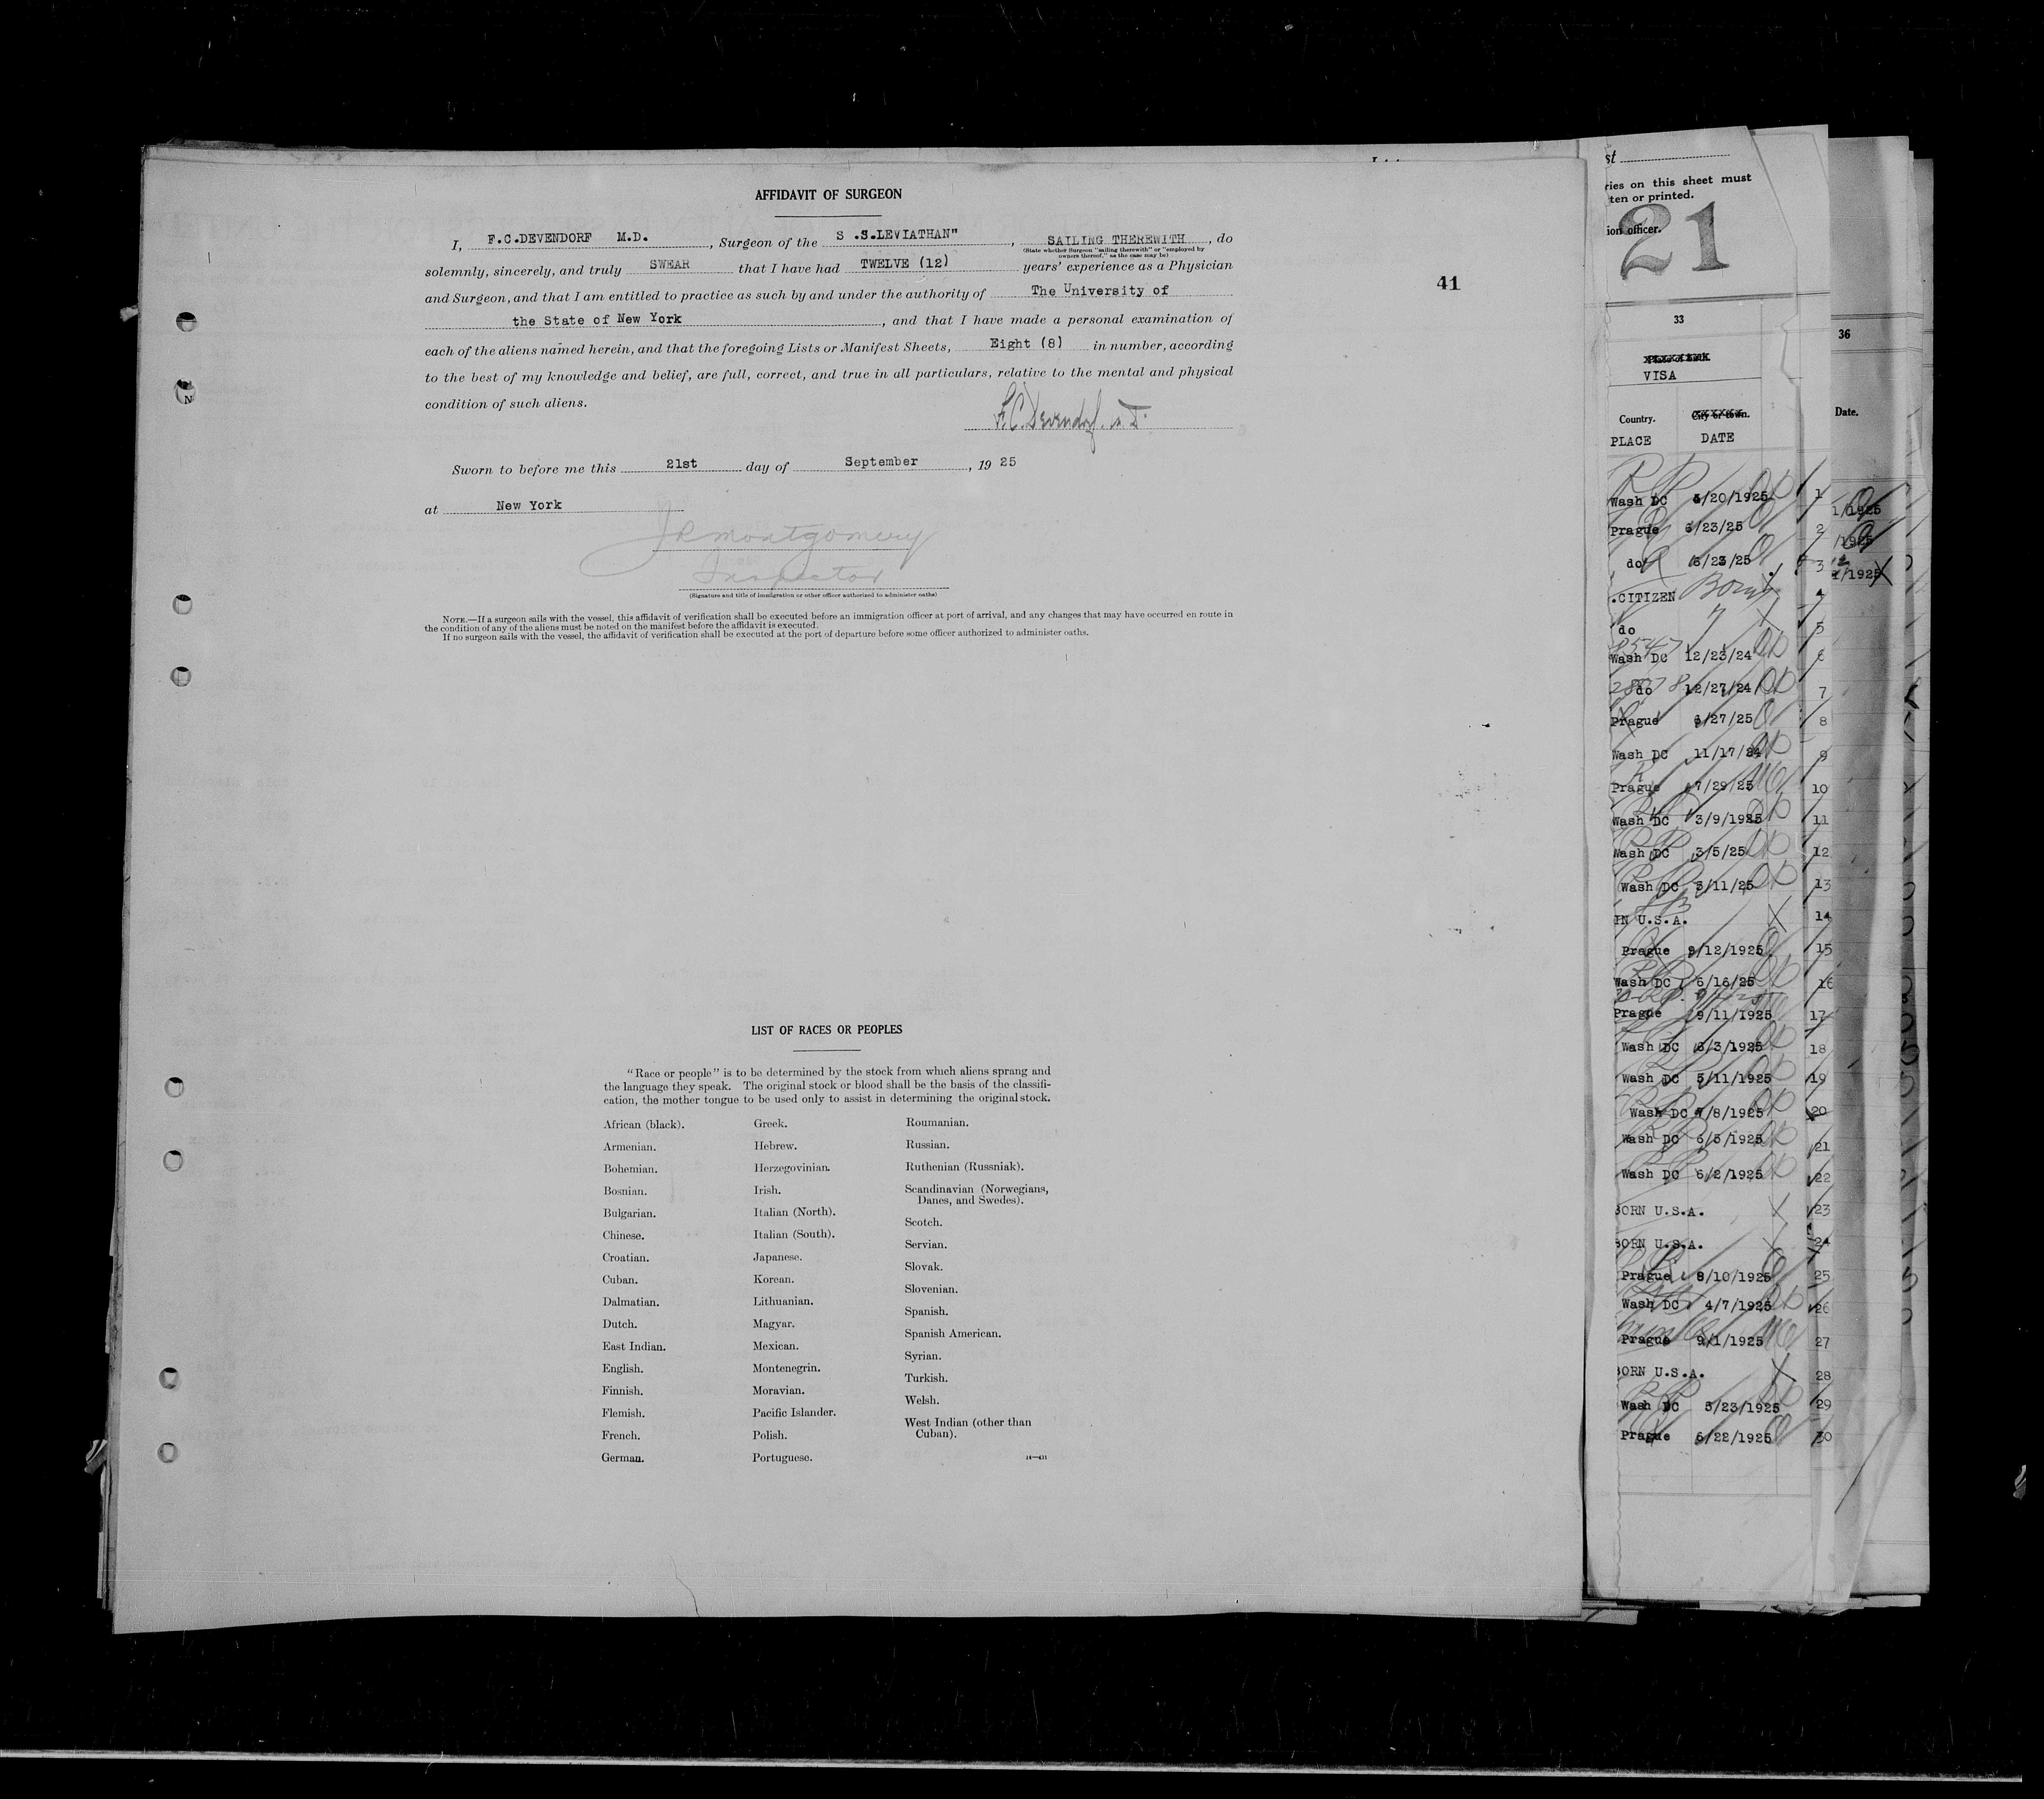 AFFIDAVIT OF SURGEON
I, F.C.DEVENDORF M.D. , Surgeon of the S .S.LEVIATHAN" , SAILING THEREWITH , do
(State whether Surgeon "sailing therewith" or "employed by
owners thereof," as the case may be)
solemnly, sincerely, and truly SWEAR that I have had TWELVE (12) years' experience as a Physician
and Surgeon, and that I am entitled to practice as such by and under the authority of The University of
the State of New York , and that I have made a personal examination of
each of the aliens named herein, and that the foregoing Lists or Manifest Sheets, Eight (8) in number, according
to the best of my knowledge and belief, are full, correct, and true in all particulars, relative to the mental and physical
condition of such aliens.
F.C. Devendorf. M.D.
Sworn to before me this 21st day of September , 19 25
at New York
JR Montgomery
Inspector
(Signature and title of immigration or other officer authorized to administer oaths)
NOTE.—If a surgeon sails with the vessel, this affidavit of verification shall be executed before an immigration officer at port of arrival, and any changes that may have occurred en route in
the condition of any of the aliens must be noted on the manifest before the affidavit is executed.
If no surgeon sails with the vessel, the affidavit of verification shall be executed at the port of departure before some officer authorized to administer oaths.
41
LIST OF RACES OR PEOPLES
"Race or people" is to be determined by the stock from which aliens sprang and
the language they speak. The original stock or blood shall be the basis of the classifi-
cation, the mother tongue to be used only to assist in determining the original stock.
African (black).
Armenian.
Bohemian.
Bosnian.
Bulgarian.
Chinese.
Croatian.
Cuban.
Dalmatian.
Dutch.
East Indian.
English.
Finnish.
Flemish.
French.
German.
Greek.
Hebrew.
Herzegovinian.
Irish.
Italian (North).
Italian (South).
Japanese.
Korean.
Lithuanian.
Magyar.
Mexican.
Montenegrin.
Moravian.
Pacific Islander.
Polish.
Portuguese.
Roumanian.
Russian.
Ruthenian (Russniak).
Scandinavian (Norwegians,
Danes, and Swedes).
Scotch.
Servian.
Slovak.
Slovenian.
Spanish.
Spanish American.
Syrian.
Turkish.
Welsh.
West Indian (other than
Cuban).
14—431
st
ries on this sheet must
ten or printed.
ion officer.
21
33
VISA
Country. City or town.
PLACE DATE
Wash DC /20/1925 1
Prague 6/23/25 2
do 6/23/25 3
.CITIZEN Born
do 5
Wash DC 12/23/24 6
do 12/27/24 7
Prague /27/25 8
Wash DC 11/17/24 9
Prague 7/29/25 10
Wash DC 3/9/1925 11
Wash DC 3/5/25 12
Wash DC 3/11/25 13
IN U.S.A. 14
Prague 9/12/1925 15
Wash DC 6/16/25 16
Prague 9/11/1925 17
Wash DC 6/3/1925 18
Wash DC 5/11/1925 19
Wash DC 7/8/1925 20
Wash DC 6/5/1925 21
Wash DC 6/2/1925 22
BORN U.S.A. 23
BORN U.S.A. 24
Prague 8/10/1925 25
Wash DC 4/7/1925 26
Prague 9/1/1925 27
BORN U.S.A. 28
Wash DC 5/23/1925 29
Prague 6/22/1925 30
36
Date.
1/1925
/1925
/1925